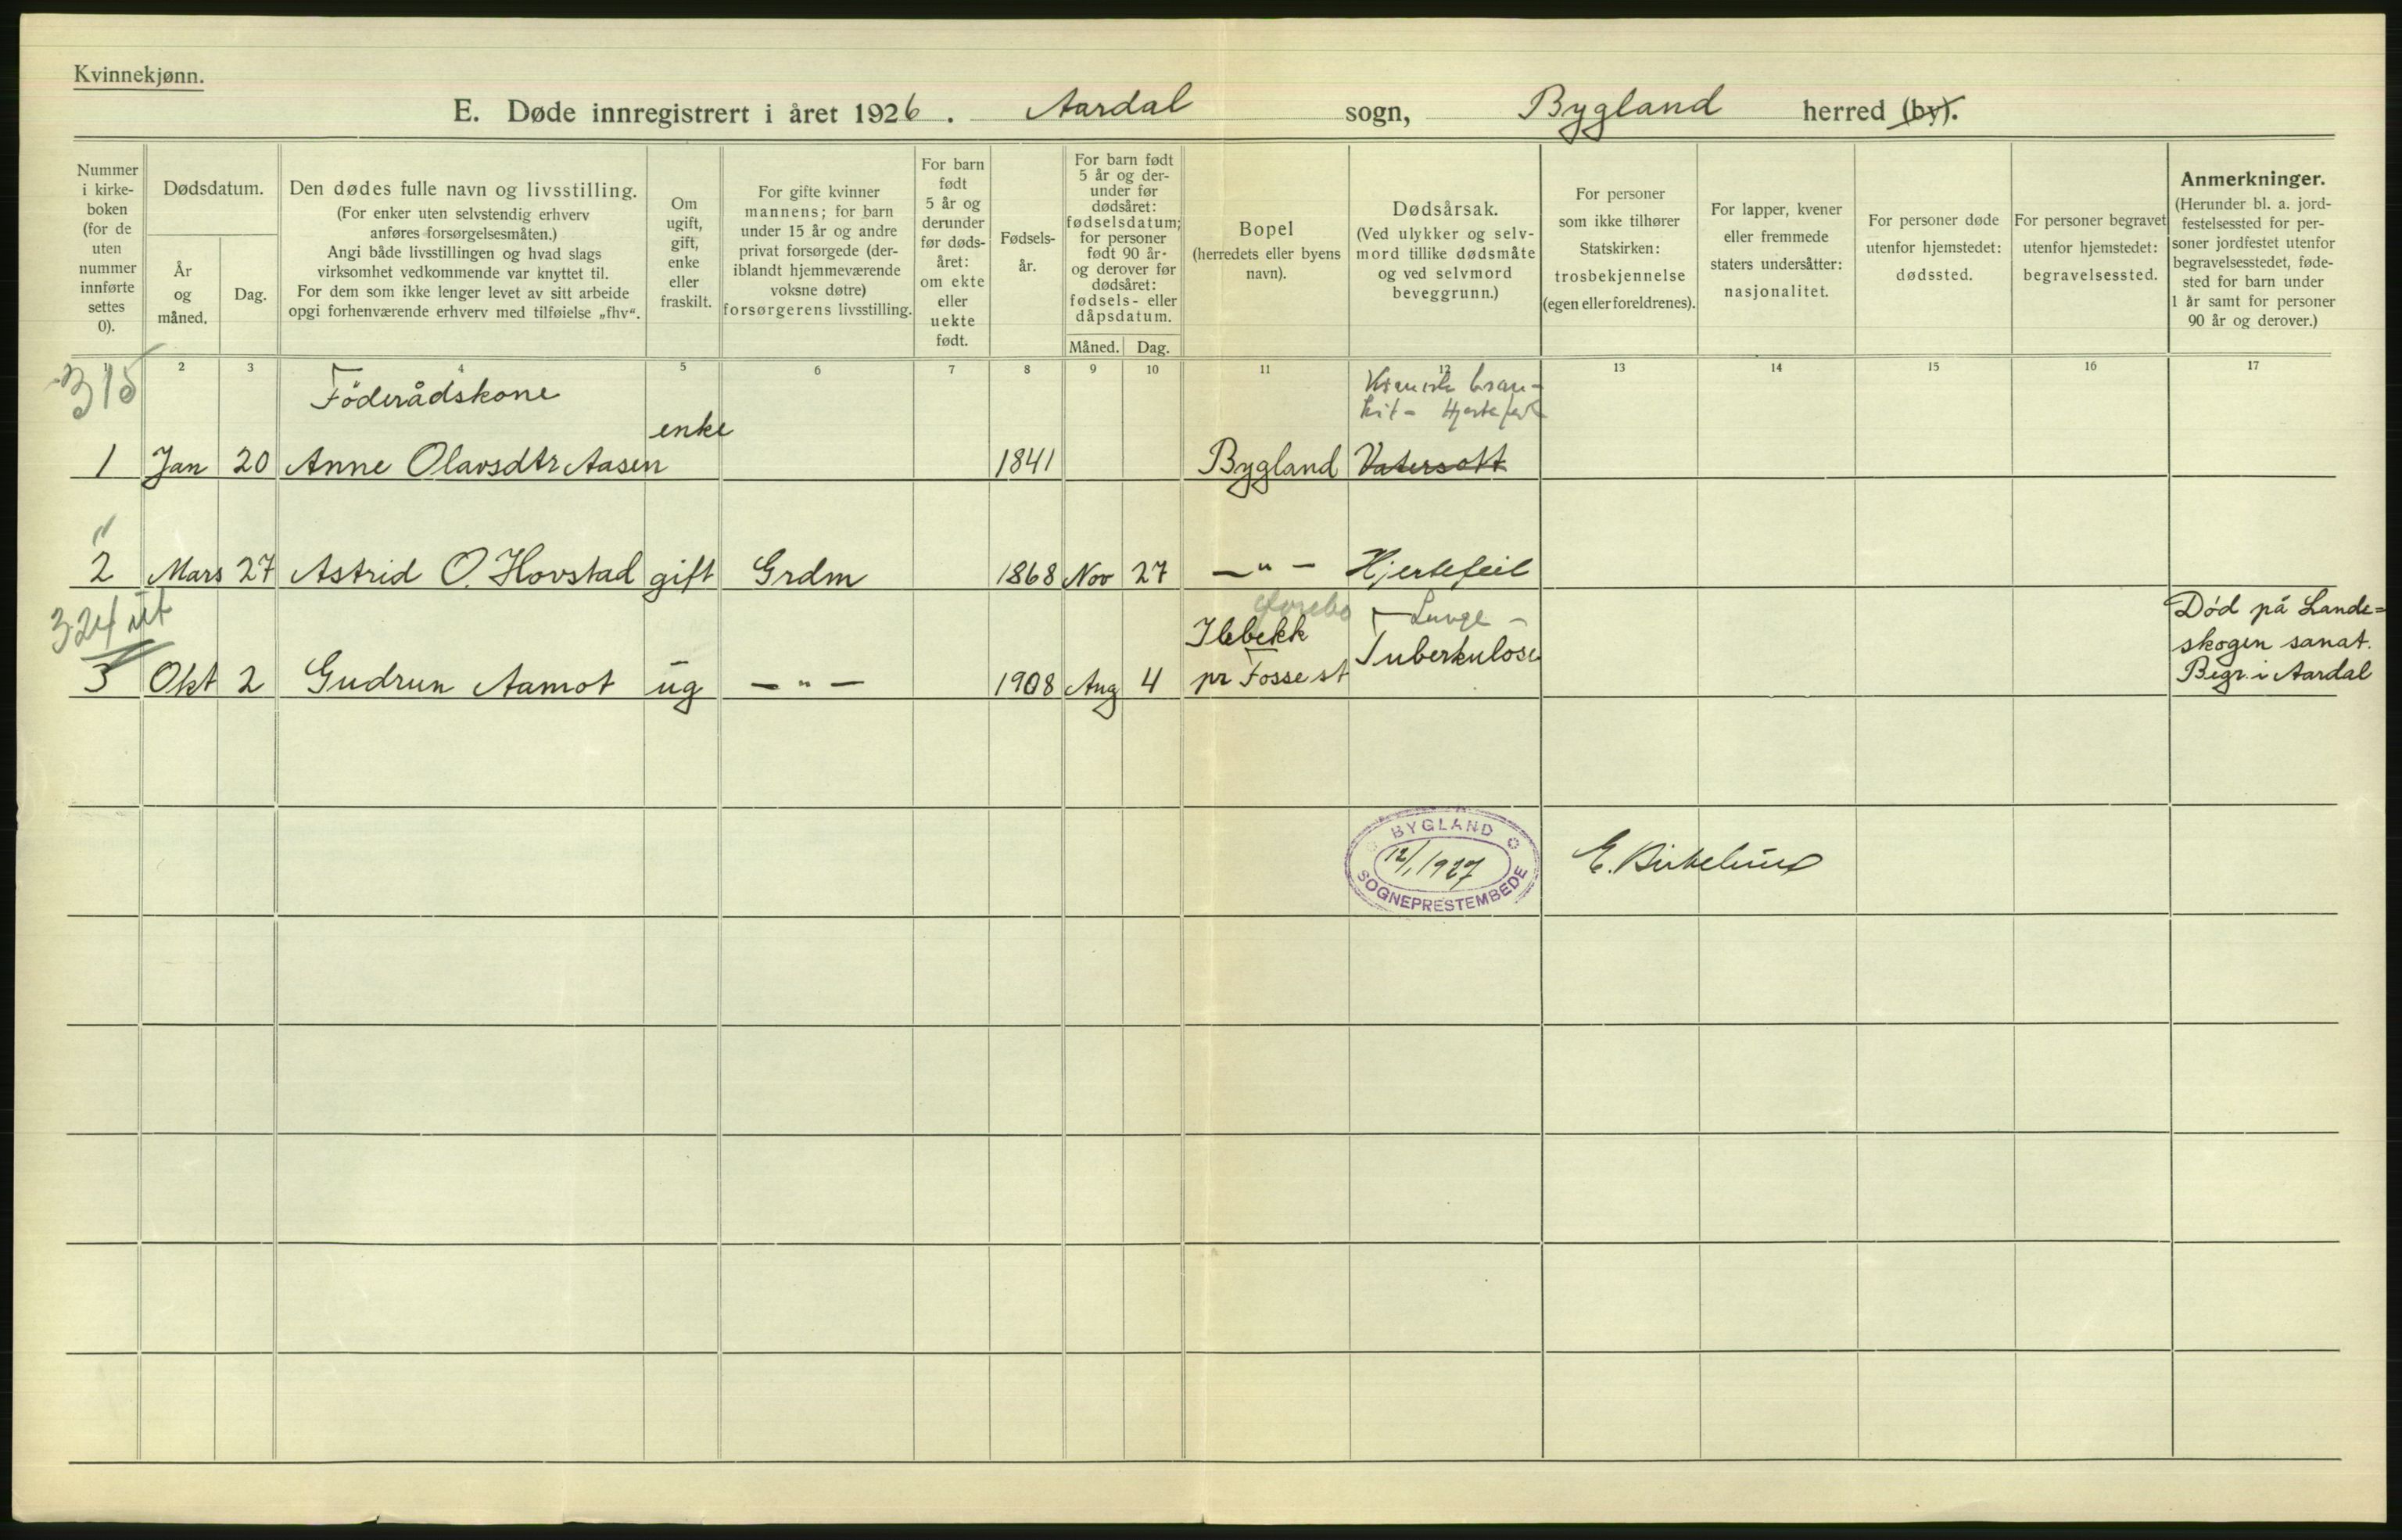 Kvinnekjønn.
E. Døde innregistrert i året 1926. Aardal sogn, Bygland herred (by).
Nummer i kirke- boken (for de uten nummer innførte settes 0).
Dødsdatum.
År og måned.
Dag.
Den dødes fulle navn og livsstilling.
(For enker uten selvstendig erhverv
anføres forsørgelsesmåten.)
Angi både livsstillingen og hvad slags
virksomhet vedkommende var knyttet til.
For dem som ikke lenger levet av sitt arbeide
opgi forhenværende erhverv med tilføielse „fhv“.
Om ugift, gift, enke eller fraskilt.
For gifte kvinner
mannens; for barn
under 15 år og andre
privat forsørgede (der-
iblandt hjemmeværende
voksne døtre)
forsørgerens livsstilling.
For barn født 5 år og derunder før døds- året: om ekte eller uekte født.
Fødsels- år.
For barn født
5 år og der-
under før
dødsåret:
fødselsdatum;
for personer
født 90 år
og derover før
dødsåret:
fødsels- eller
dåpsdatum.
Måned. Dag.
Bopel
(herredets eller byens
navn).
Dødsårsak.
(Ved ulykker og selv-
mord tillike dødsmåte
og ved selvmord
beveggrunn.)
For personer
som ikke tilhører
Statskirken:
trosbekjennelse
(egen eller foreldrenes).
For lapper, kvener
eller fremmede
staters undersåtter:
nasjonalitet.
For personer døde
utenfor hjemstedet:
dødssted.
For personer begravet
utenfor hjemstedet:
begravelsessted.
Anmerkninger.
(Herunder bl. a. jord-
festelsessted for per-
soner jordfestet utenfor
begravelsesstedet, føde-
sted for barn under
1 år samt for personer
90 år og derover.)
1 2 3 4 5 6 7 8 9 10 11 12 13 14 15 16 17
315
Föderådskone
Kronisk bron-
kit - Hjertefeil
enke
1 Jan 20 Anne Olavsdtr Aasen 1841 Bygland Vatersott
"
2 Mars 27 Astrid O. Hovstad gift Grdm 1868 Nov 27 — " — Hjertefeil
324 ut
Lunge -
3 Okt 2 Gudrun Aamot ug — " — 1908 Aug 4
Ilebekk
pr Fosse st
Tuberkulose
Død på Lande-
skogen sanat.
Begr. i Aardal
BYGLAND
12/1 1927
SOGNEPRESTEMBEDE
E. Birkelund